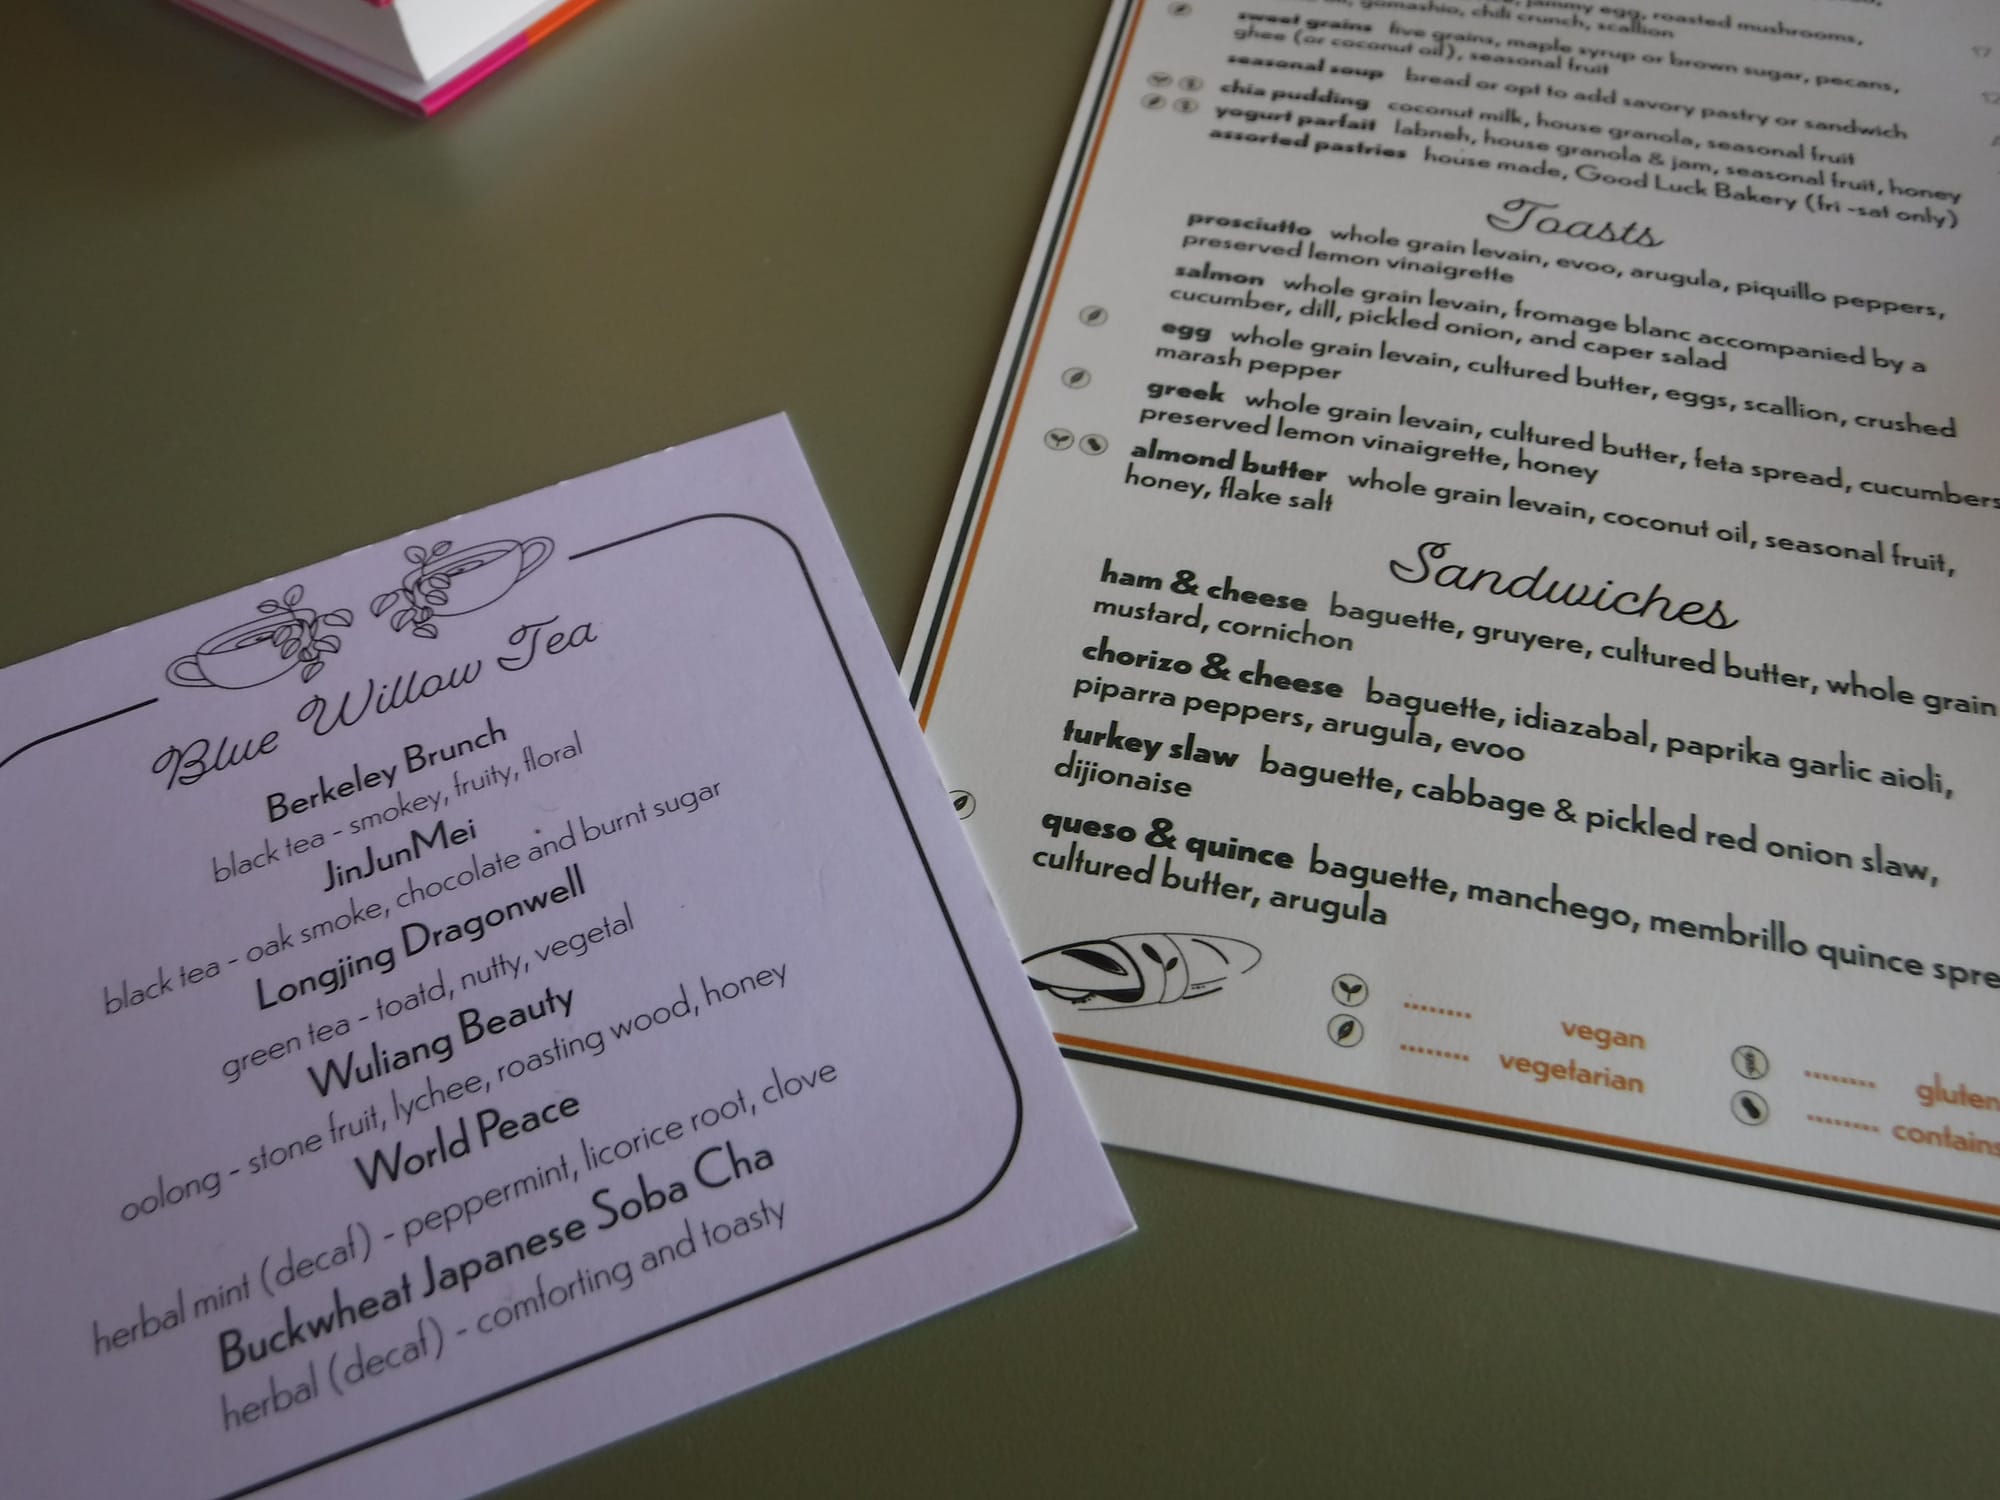 Blue Willow Tea
Berkeley Brunch
black tea - smokey, fruity, floral
JinJunMei
black tea - oak smoke, chocolate and burnt sugar
Longjing Dragonwell
green tea - toatd, nutty, vegetal
Wuliang Beauty
oolong - stone fruit, lychee, roasting wood, honey
World Peace
herbal mint (decaf) - peppermint, licorice root, clove
Buckwheat Japanese Soba Cha
herbal (decaf) - comforting and toasty
jammy egg, roasted mushrooms,
gomashio, chili crunch, scallion
sweet grains five grains, maple syrup or brown sugar, pecans,
ghee (or coconut oil), seasonal fruit
seasonal soup bread or opt to add savory pastry or sandwich
chia pudding coconut milk, house granola, seasonal fruit
yogurt parfait labneh, house granola & jam, seasonal fruit, honey
assorted pastries house made, Good Luck Bakery (fri -sat only)
Toasts
prosciutto whole grain levain, evoo, arugula, piquillo peppers,
preserved lemon vinaigrette
salmon whole grain levain, fromage blanc accompanied by a
cucumber, dill, pickled onion, and caper salad
egg whole grain levain, cultured butter, eggs, scallion, crushed
marash pepper
greek whole grain levain, cultured butter, feta spread, cucumbers
preserved lemon vinaigrette, honey
almond butter whole grain levain, coconut oil, seasonal fruit,
honey, flake salt
Sandwiches
ham & cheese baguette, gruyere, cultured butter, whole grain
mustard, cornichon
chorizo & cheese baguette, idiazabal, paprika garlic aioli,
piparra peppers, arugula, evoo
turkey slaw baguette, cabbage & pickled red onion slaw,
dijionaise
queso & quince baguette, manchego, membrillo quince spre
cultured butter, arugula
........ vegan
........ vegetarian
........ gluten
........ contains